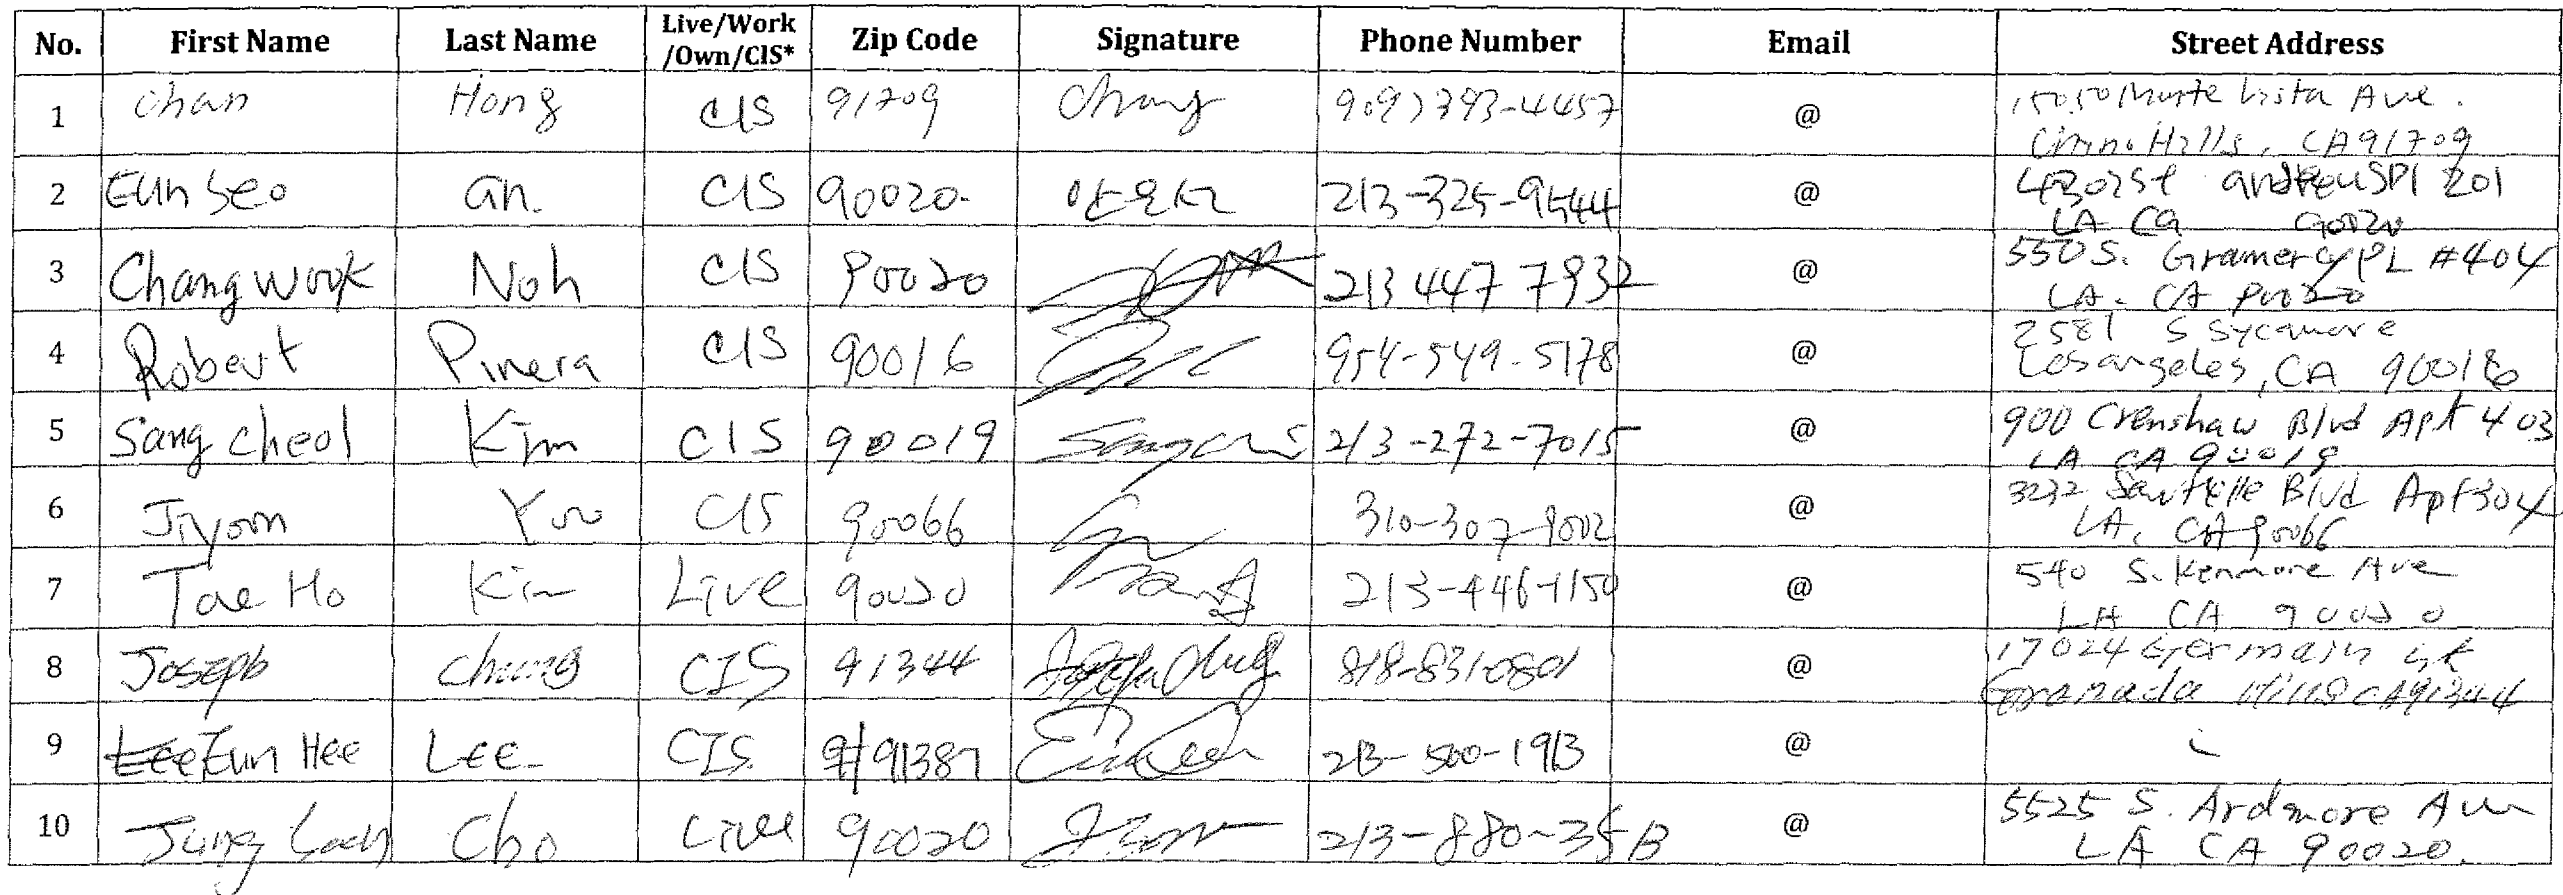 No. First Name Last Name Live/Work /Own/CIS* Zip Code Signature Phone Number Email Street Address
1 Chan Hong CIS 91709 909) 393-4457 @ Vista Ave.
Hills, CA 91709
2 Eun Seo an. CIS 90020. 안은서 213-325-9544 @ 201
LA CA 90020
3 Chang wook Noh CIS 90020 213 447 7932 @ 550 S. Gramercy PL #404
LA. CA 90020
4 Robert Pinera CIS 90016 954-549-5178 @ 2581 S Sycamore
Los angeles, CA
5 Sang cheol Kim CIS 90019 213-272-7015 @ 900 Crenshaw Blvd Apt 403
LA CA 90019
6 Jiyoon Yoo CIS 90066 310-307-9002 @ 3232 Sawtelle Blvd Apt 304
LA, CA 90066
7 Tae Ho Kim Live 90020 213-446-1150 @ 540 S. Kenmore Ave
LA CA 90020
8 Joseph Chung CIS 91344 818-831-0801 @ 17024 Germain st
Granada Hills CA 91344
9 Eun Hee Lee CIS 91387 213-500-1913 @
10 Cho Live 90020 213-880- @ 5525 S. Ardmore Ave
LA CA 90020.